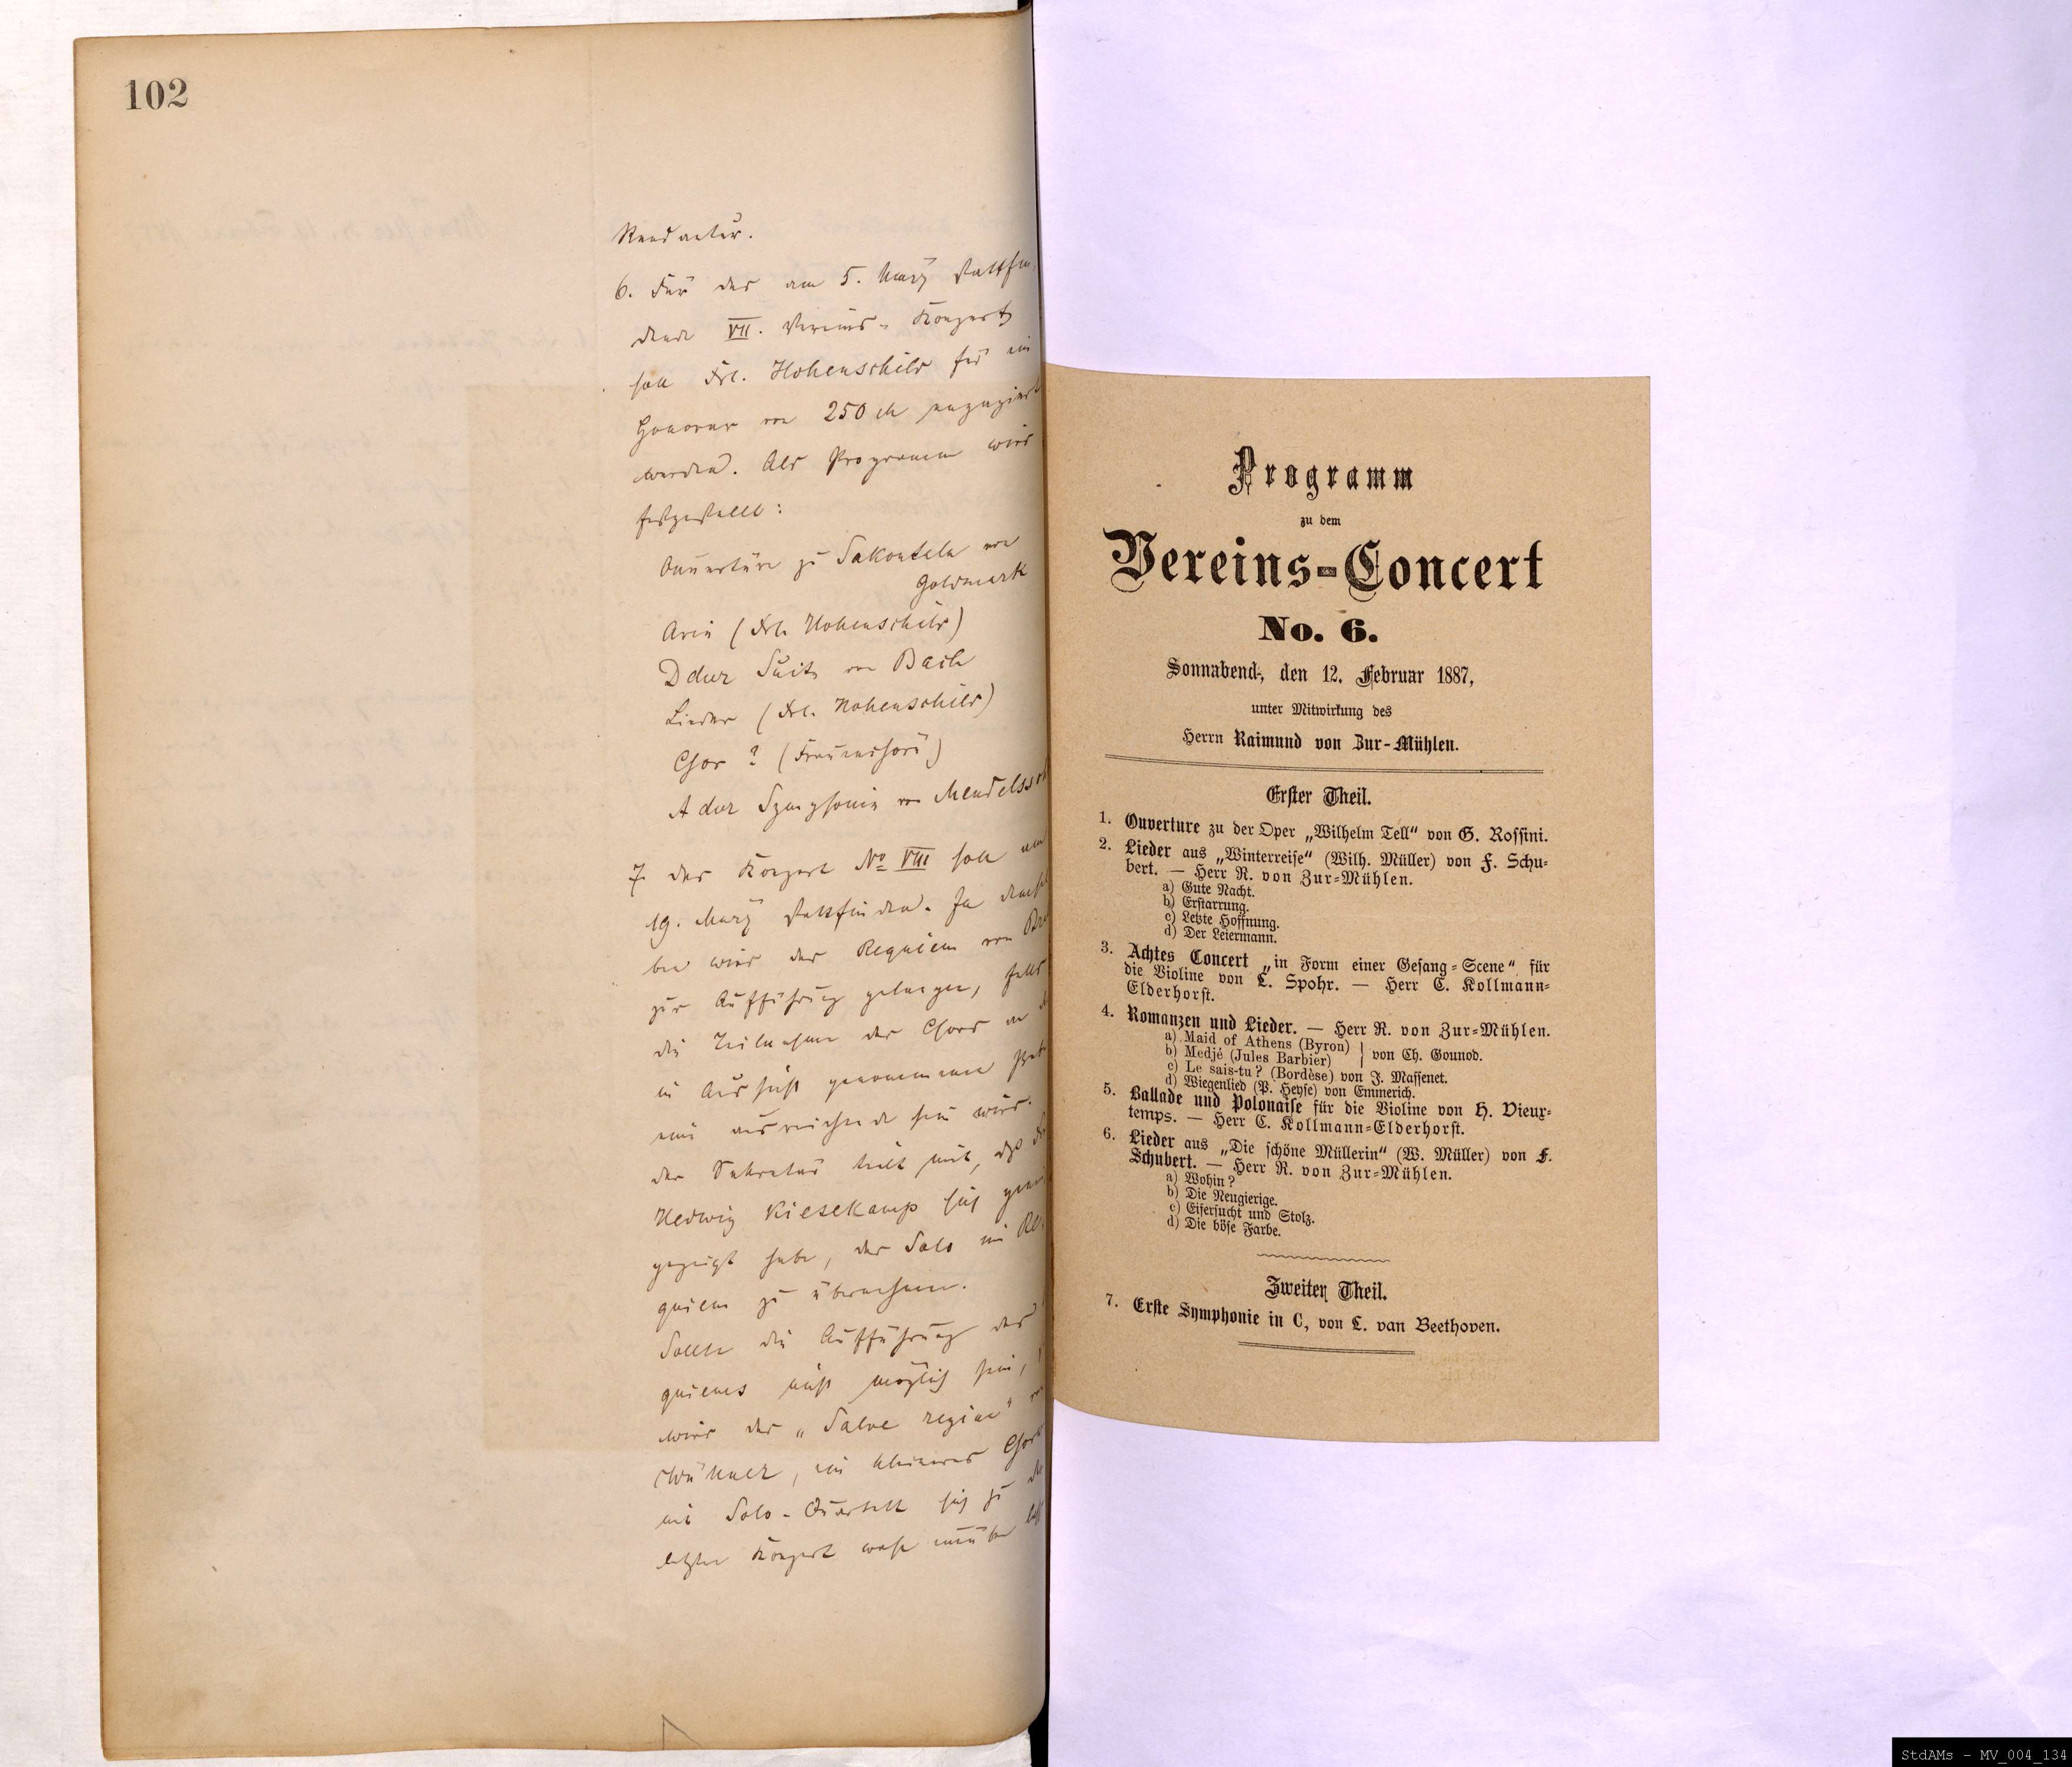 102
Rendantur.
6. Für das am 5. März stattfin
dende VII. Vereins-Konzert
soll Frl. Hohenschild für ein
Honorar von 250 M engagirt
werden. Als Programm wird
festgestellt:
Ouvertüre zu Sakontala von
Goldmark
Arie (Frl. Hohenschild)
D dur Suite von Bach
Lieder (Frl. Hohenschild)
Chor ? (Frauenchor)
A dur Symphonie von Mendelssoh
7. Das Konzert No VIII soll am
19. März stattfinden. In demsel
ben wird das Requiem von Br
zur Aufführung gelangen, falls
die Teilnahme des Chors an d
in Aussicht genommenen Pro
eine ausreichende sein wird.
Der Sekretär teilt mit, daß
Hedwig Kiesekamp sich
gezeigt habe, das Solo im Re
quiem zu übernehmen.
Sollte die Aufführung des
quiems nicht möglich sein,
wird das „Salve regina"
ein kleineres Chor
mit Solo-Quartett sich zu
letzten Konzert
Programm
zu dem
Vereins-Concert
No. 6.
Sonnabend, den 12. Februar 1887,
unter Mitwirkung des
Herrn Raimund von Zur-Mühlen.
Erster Theil.
1. Ouverture zu der Oper „Wilhelm Tell“ von G. Rossini.
2. Lieder aus „Winterreise“ (Wilh. Müller) von F. Schu-
bert. — Herr R. von Zur-Mühlen.
a) Gute Nacht.
b) Erstarrung.
c) Letzte Hoffnung.
d) Der Leiermann.
3. Achtes Concert „in Form einer Gesang-Scene“ für
die Violine von L. Spohr. — Herr C. Kollmann-
Elderhorst.
4. Romanzen und Lieder. — Herr R. von Zur-Mühlen.
a) Maid of Athens (Byron)
b) Medjé (Jules Barbier) } von Ch. Gounod.
c) Le sais-tu? (Bordèse) von J. Massenet.
d) Wiegenlied (P. Heyse) von Emmerich.
5. Ballade und Polonaise für die Violine von H. Vieux-
temps. — Herr C. Kollmann-Elderhorst.
6. Lieder aus „Die schöne Müllerin“ (W. Müller) von F.
Schubert. — Herr R. von Zur-Mühlen.
a) Wohin?
b) Die Neugierige.
c) Eifersucht und Stolz.
d) Die böse Farbe.
Zweiter Theil.
7. Erste Symphonie in C, von L. van Beethoven.
StdAMs - MV_004_134